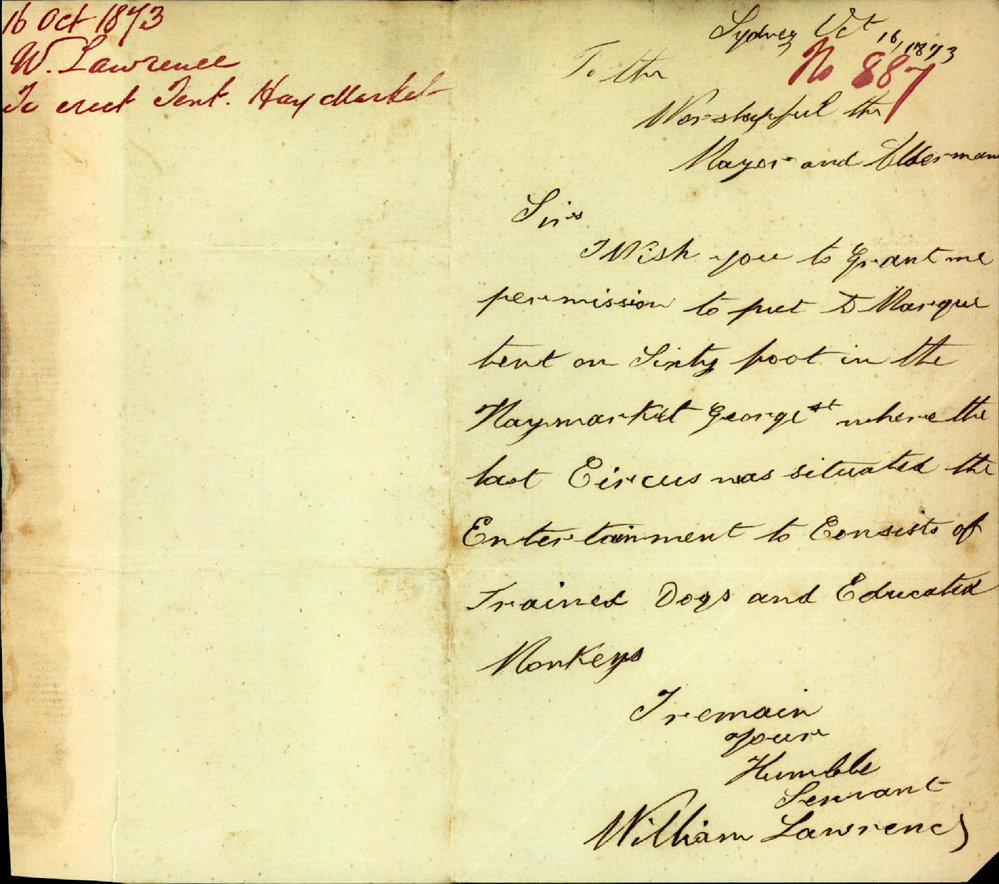 16 Oct 1873
W. Lawrence
To erect Tent. Hay Market
Sydney Oct 16, 1873
No 887
To the
Worshupful the
Mayor and Alderman
Sirs
I Wish you to Grant me
permission to put Marque
tent on Sixty foot in the
Haymarket George St where the
last Circus was situated the
Entertainment to Consists of
Trained Dogs and Educated
Monkeys
I remain
your
Humble
Servant
William Lawrence